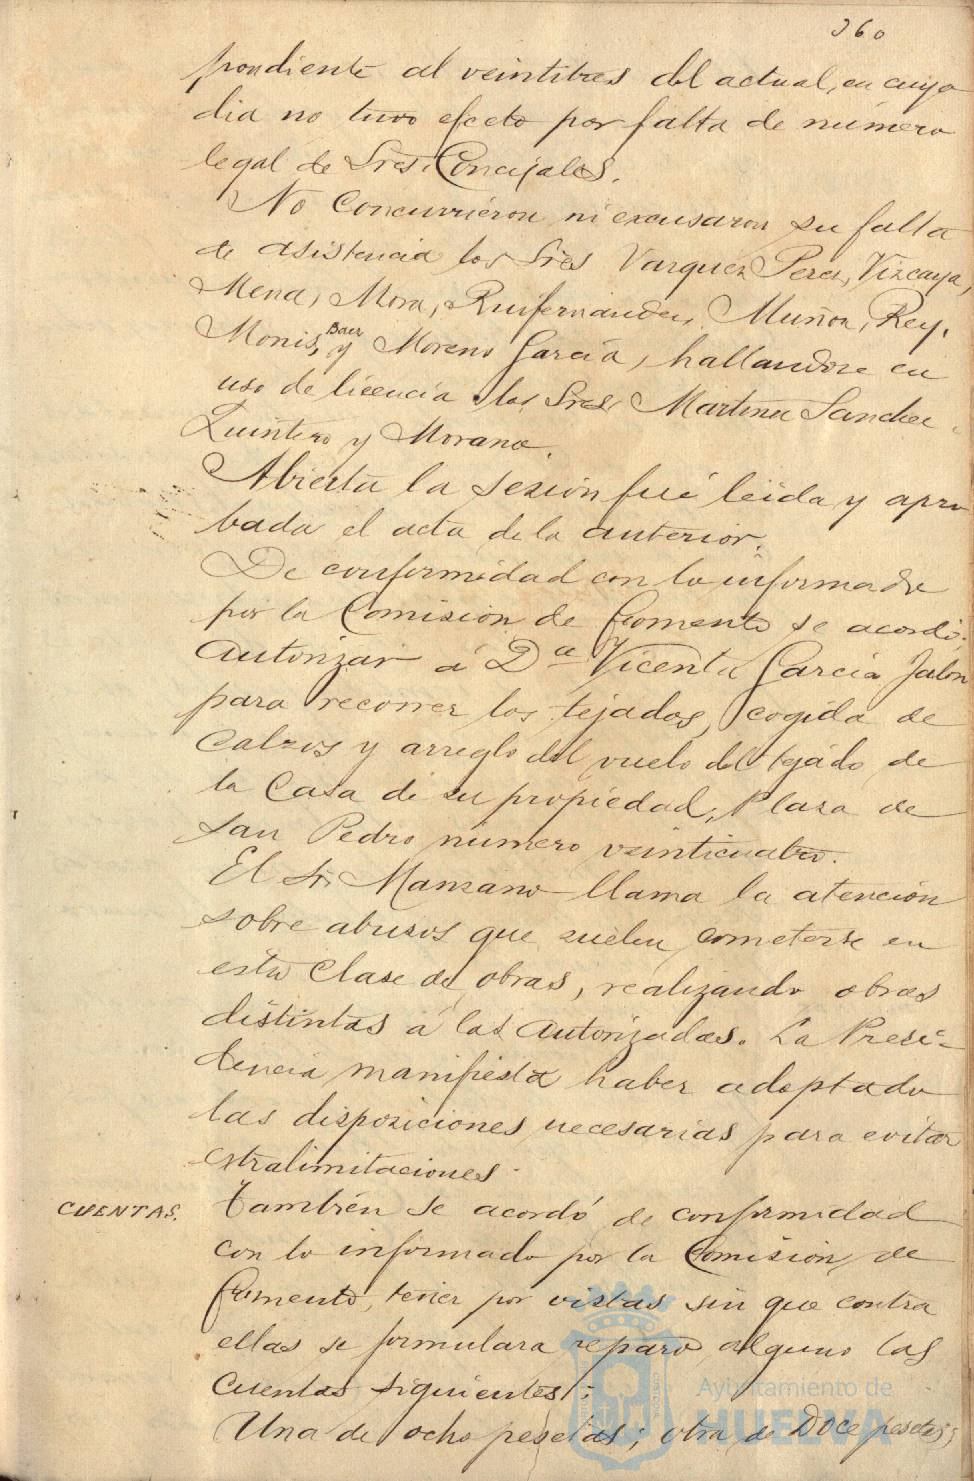 360
pondiente al veintitres del actual, en cuyo
dia no tuvo efecto por falta de número
legal de Sres. Concejales.
No concurrieron ni excusaron su falta
de asistencia los Sres Vazquez Perez, Vizcaya,
Mena, Mora, Ruifernandez, Muñoz, Rey,
Monis, Baer y Moreno García, hallandose en
uso de licencia los Sres. Martinez Sanchez,
Quintero y Morano.
Abierta la sesión fué leida y apro
bada el acta de la anterior.
De conformidad con lo informado
por la Comision de Fomento se acordó:
Autorizar á Dª Vicenta García Jalon
para recorrer los tejados, cogida de
Calzos y arreglo del vuelo del tejado de
la Casa de su propiedad, Plaza de
San Pedro número veinticuatro.
El Sr. Manzano llama la atención
sobre abusos que suelen cometerse en
esta clase de obras, realizando obras
distintas á las autorizadas. La Presi-
dencia manifiesta haber adoptado
las disposiciones necesarias para evitar
estralimitaciones.
CUENTAS. También se acordó de conformidad
con lo informado por la Comision de
Fomento, tener por vistas sin que contra
ellas se formulara reparo alguno las
cuentas siguientes:
Una de ocho pesetas; otra de DOce pesetas;
Ayuntamiento de
HUELVA